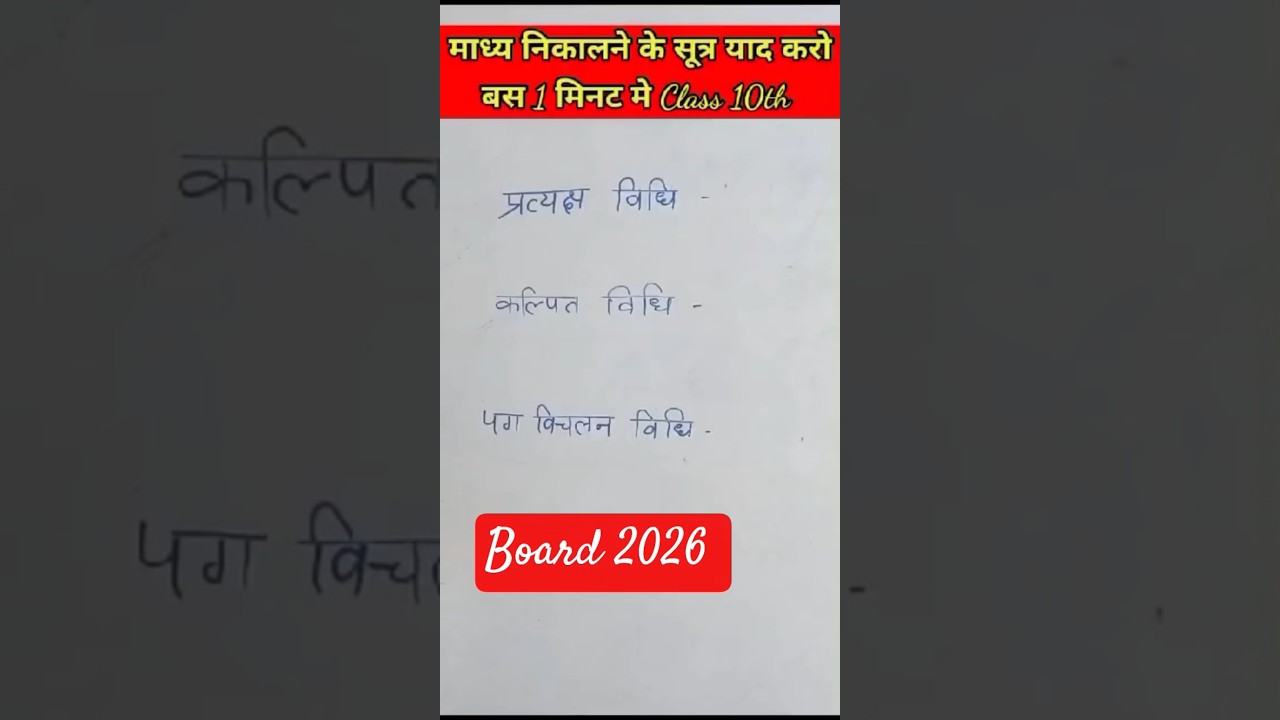 माध्य निकालने के सूत्र याद करो
बस 1 मिनट मे Class 10th
प्रत्यक्ष विधि -
कल्पित विधि -
पग विचलन विधि -
Board 2026
कल्पित
पग विच